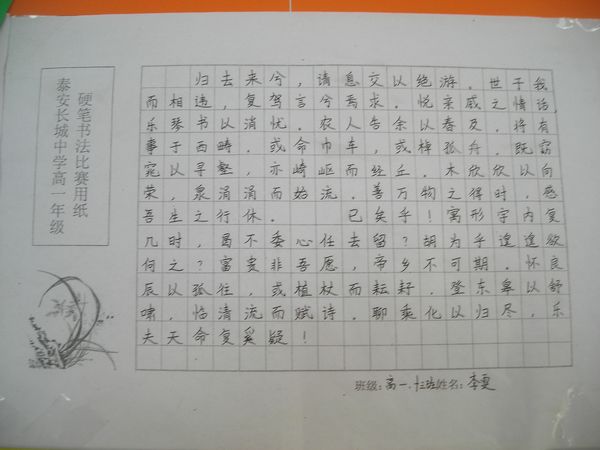 硬笔书法比赛用纸
泰安长城中学高一年级
归去来兮，请息交以绝游。世于我
而相违，复驾言兮焉求。悦亲戚之情话，
乐琴书以消忧。农人告余以春及，将有
事于西畴。或命巾车，或棹孤舟。既窈
窕以寻壑，亦崎岖而经丘。木欣欣以向
荣，泉涓涓而始流。善万物之得时，感
吾生之行休。 已矣乎！寓形宇内复
几时，曷不委心任去留？胡为乎遑遑欲
何之？富贵非吾愿，帝乡不可期。怀良
辰以孤往，或植杖而耘耔。登东皋以舒
啸，临清流而赋诗。聊乘化以归尽，乐
夫天命复奚疑！
班级：高一.十三班姓名：李夏